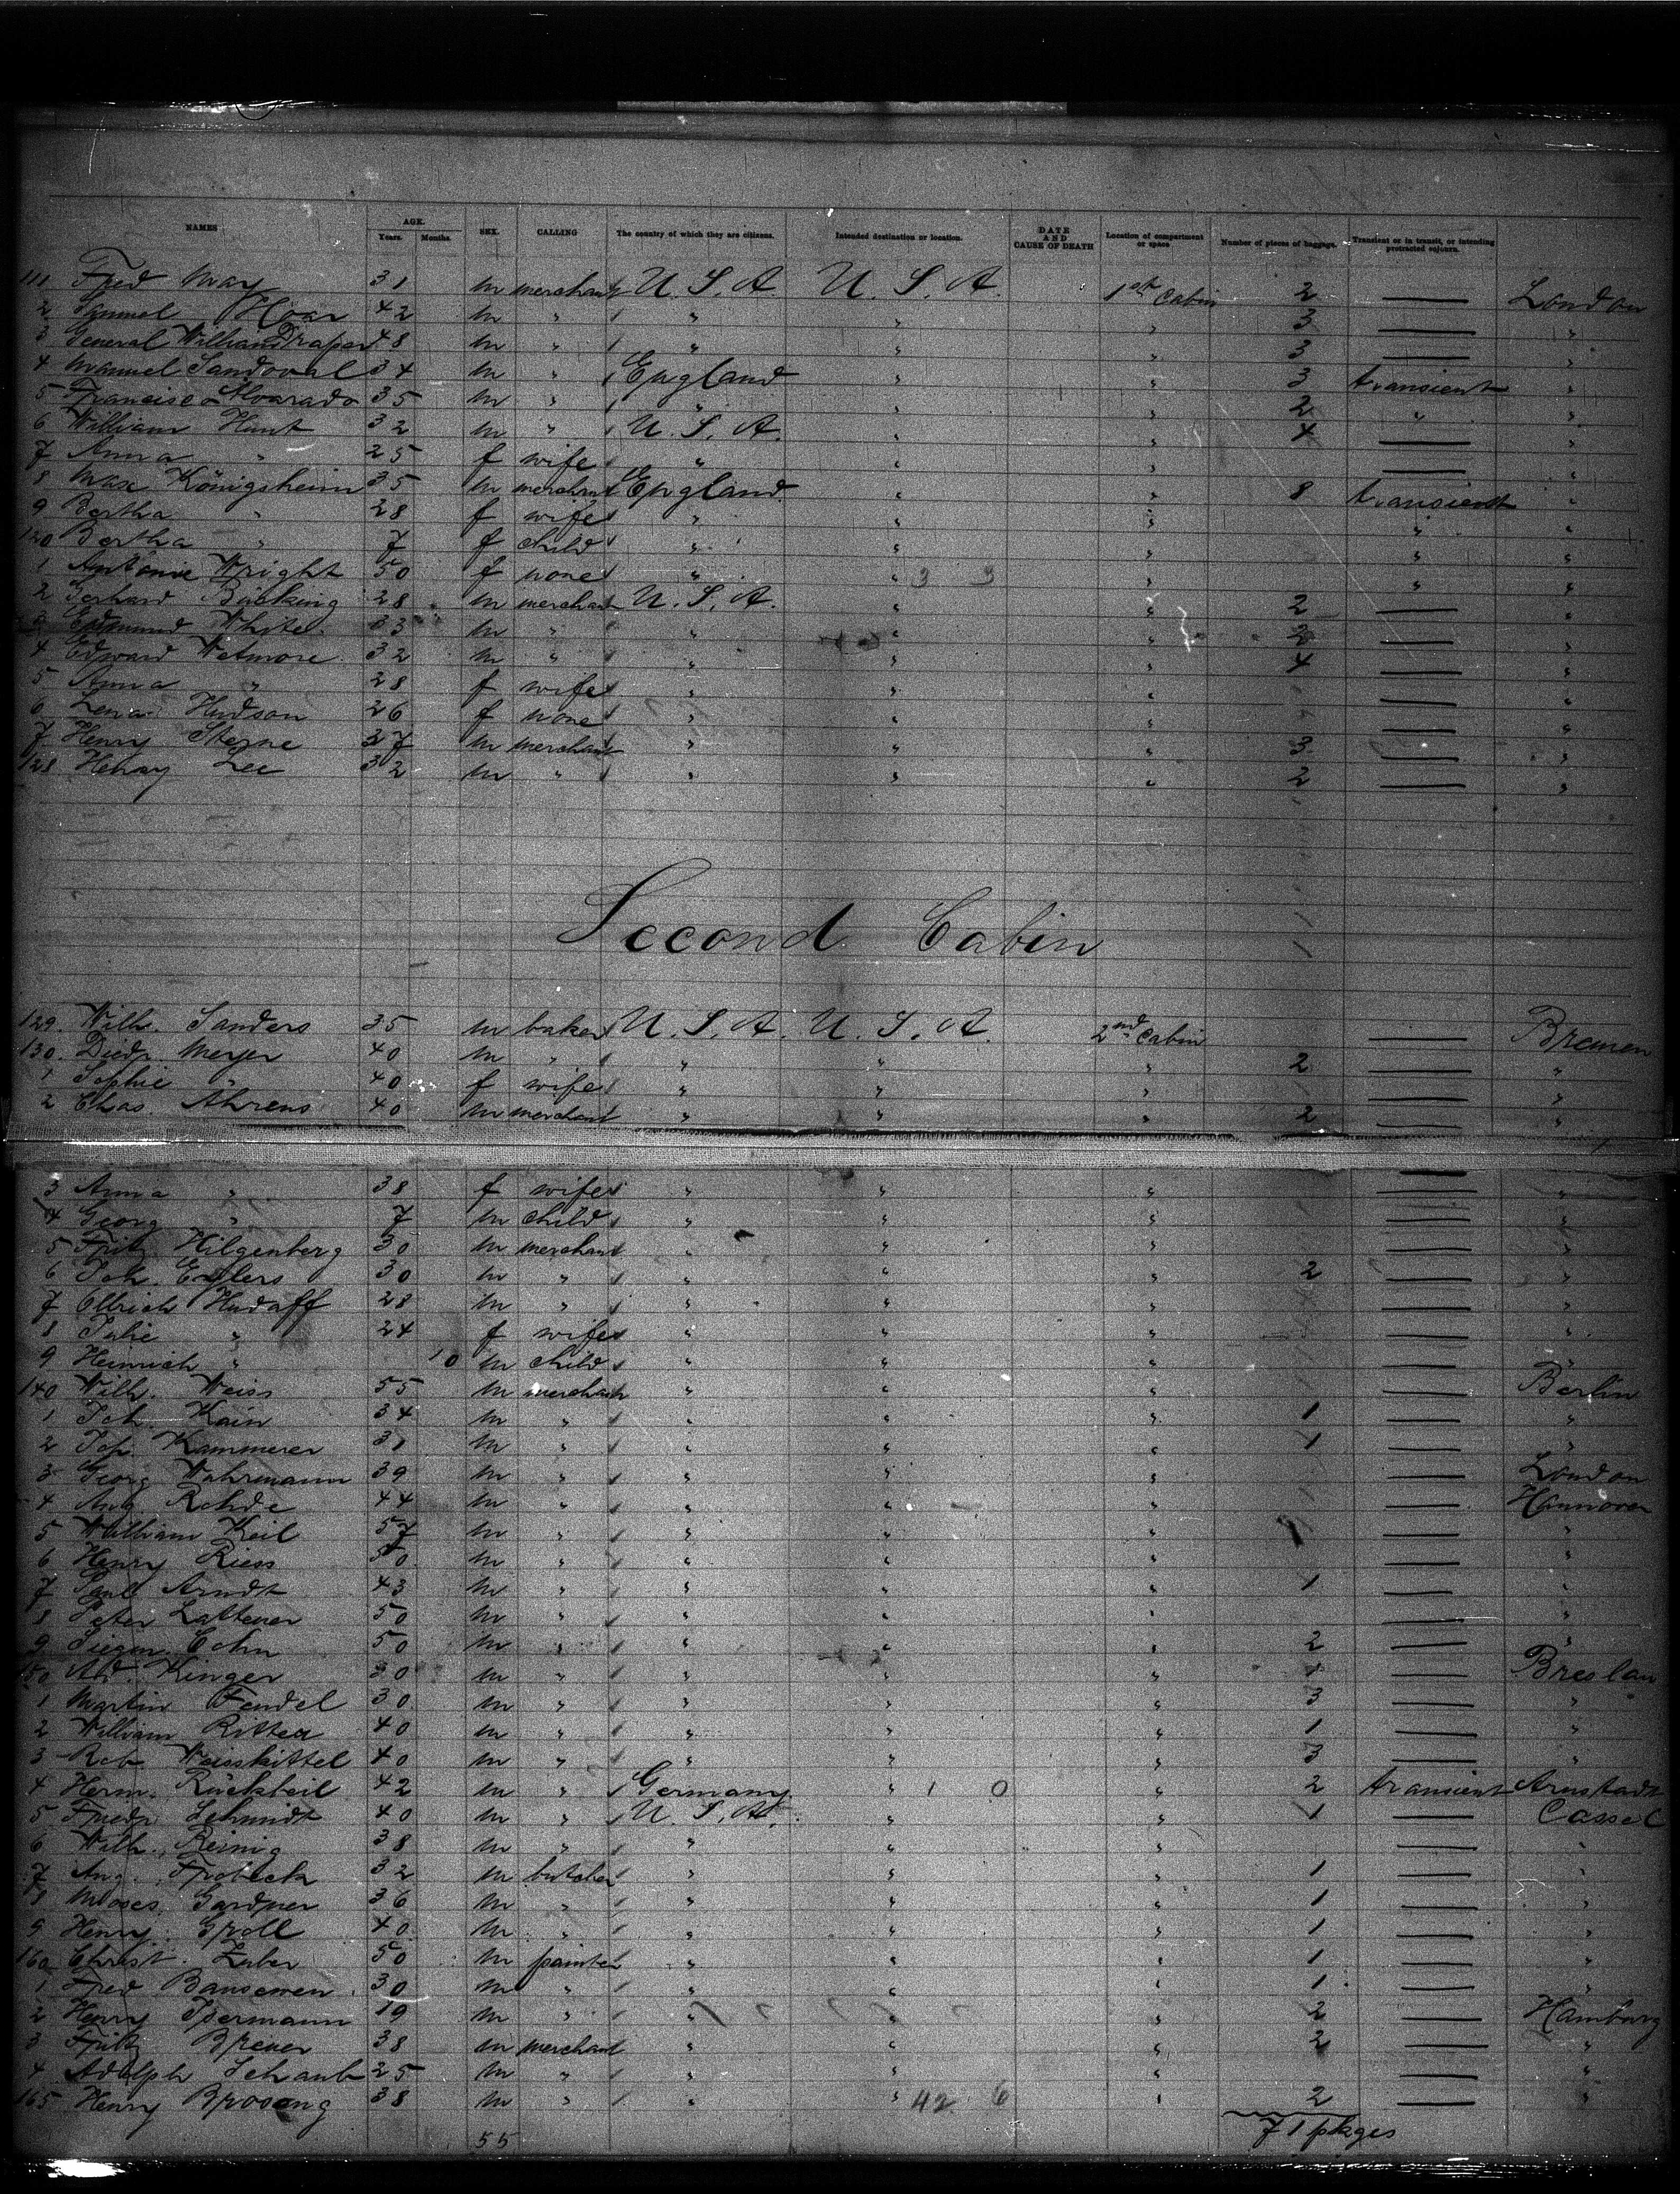 NAMES AGE. Years. Months. SEX. CALLING The country of which they are citizens. Intended destination or location. DATE AND CAUSE OF DEATH Location of compartment or space Number of pieces of baggage. Transient or in transit, or intending protracted sojourn.
111 Fred May 31 m merchant U.S.A. U.S.A. 1st Cabin 2 — London
2 Samuel Hoar 42 m " " " " 3 — "
3 General William Draper 48 m " " " " 3 — "
4 Manuel Sandoval 34 m " England " " 3 transient "
5 Francisco Alvarado 35 m " " " " 2 " "
6 William Hunt 32 m " U.S.A. " " 4 — "
7 Anna " 25 f wife " " " — "
8 Max Königsheim 35 m merchant England " " 8 transient "
9 Bertha " 28 f wife " " " " "
120 Bertha " 7 f child " " " " "
1 Antonie Wright 50 f none " " 3 3 " " "
2 Gerhard Bücking 28 m merchant U.S.A. " " 2 — "
3 Edmund White 33 m " " " " 2 — "
4 Edward Wetmore 32 m " " " " 4 — "
5 Anna " 28 f wife " " " — "
6 Lena Hudson 26 f none " " " — "
7 Henry Sterne 37 m merchant " " " 3 — "
128 Henry Lee 32 m " " " " 2 — "
Second Cabin
129. Wilh. Sanders 35 m baker U.S.A. U.S.A. 2nd Cabin — Bremen
130. Diedr. Meyer 40 m " " " " 2 — "
1 Sophie " 40 f wife " " " — "
2 Chas. Ahrens 40 m merchant " " " 2 — "
3 Anna " 38 f wife " " " — "
4 Georg " 7 m child " " " — "
5 Fritz Hilgenberg 30 m merchant " " " — "
6 Joh. Ehlers 30 m " " " " 2 — "
7 Ollrich Hudaff 28 m " " " " — "
8 Julie " 24 f wife " " " — "
9 Heinrich " 10 m child " " " — "
140 Wilh. Weiss 55 m merchant " " " — Berlin
1 Joh. Kain 34 m " " " " 1 — "
2 Joh. Kammerer 31 m " " " " 1 — "
3 Georg Wahrmann 39 m " " " " — London
4 Aug. Rohde 44 m " " " " — Hannover
5 William Keil 57 m " " " " 1 — "
6 Henry Riess 50 m " " " " — "
7 Paul Arndt 43 m " " " " 1 — "
8 Peter Lattener 50 m " " " " — "
9 Siegm. Cohn 50 m " " " " 2 — "
150 Ad. Kinger 30 m " " " " 4 — Breslau
1 Martin Fendel 30 m " " " " 3 — "
2 William Ritter 40 m " " " " 1 — "
3 Rob. Weisskittel 40 m " " " " 3 — "
4 Herm. Rückbeil 42 m " Germany " 1 0 " 2 transient Arnstadt
5 Friedr. Schmidt 40 m " U.S.A. " " 1 — Cassel
6 Wilh. Reinig 38 m " " " " — "
7 Aug. Frobeck 32 m butcher " " " 1 — "
8 Moses Gardner 36 m " " " " 1 — "
9 Henry Groll 40 m " " " " 1 — "
160 Christ. Zuber 50 m painter " " " 1 — "
1 Fred Bansemen 30 m " " " " 1 — "
2 Henry Isermann 19 m " " " " 2 — Hamburg
3 Fritz Breuer 38 m merchant " " " 2 — "
4 Adolph Schaub 25 m " " " " — "
165 Henry Brosang 38 m " " " 42 6 " 2 — "
55 71 pkges